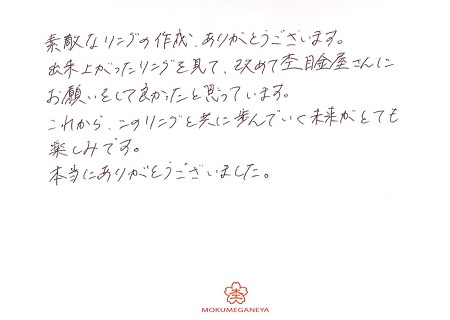 素敵なリングの作成、ありがとうございます。
出来上がったリングを見て、改めて杢目金屋さんに
お願いをして良かったと思っています。
これから、このリングと共に歩んでいく未来がとても
楽しみです。
本当にありがとうございました。
杢
MOKUMEGANEYA